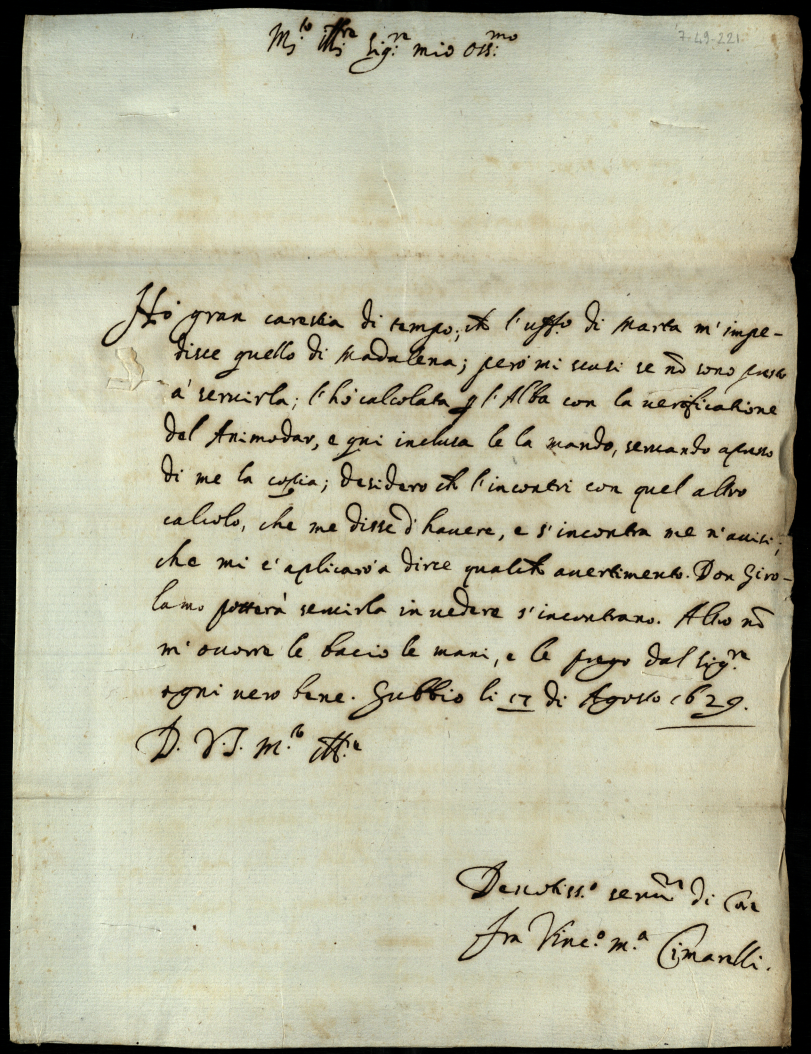 7-49-221.
M.to Ill.re Sig.re mio oss.mo
Hò gran carestia di tempo; ch l'uffo di Marta m'impe-
disce quello di Madalena; però mi scusi se nõ sono presto
à seruirla; l'hò calcolata p l'Alba con la uerificatione
del Animodar, e qui inclusa le la mando, seruando apresso
di me la copia; desidero ch l'incontri con quel altro
calcolo, che me disse d'hauere, e s'incontra me n'auisi;
che mi è aplicarò a dirce qualch auertimento. Don Giro-
lamo potterà seruirla in uedere s'incontrano. Altro nõ
m'ocorre le bacio le mani, e le prego dal Sig.re
ogni uero bene. Gubbio li 17 di Agosto 1629.
D. V. S. M.to Ill.e
Deuotiss.o ser.re di Core
Fra Vinc.o M.a Cimarelli.